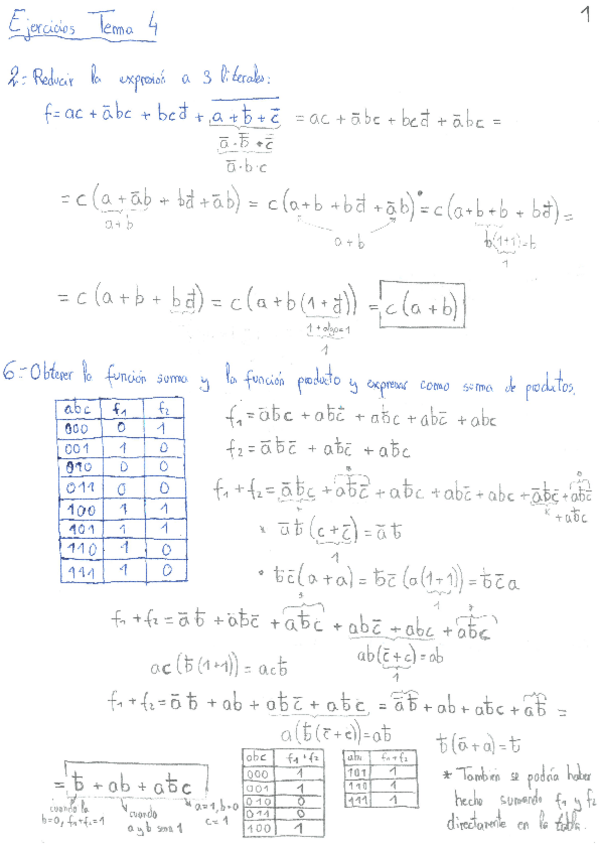 1
Ejercicios Tema 4
2.- Reducir la expresión a 3 literales:
f = ac + ābc + bcd̄ + \overline{a + b̄ + c̄} = ac + ābc + bcd̄ + ābc =
ā · \overline{b̄ + c̄}
ā · b · c
= c (a + āb + bd̄ + āb) = c (a + b + bd̄ + āb) = c (a + b + b + bd̄) =
a + b
a + b
b(1+1) = b
1
= c (a + b + bd̄) = c (a + b (1 + d̄)) = c (a + b)
1 + algo = 1
1
6.- Obtener la función suma y la función producto y expresar como suma de produtos.
abc f₁ f₂
000 0 1
001 1 0
010 0 0
011 0 0
100 1 1
101 1 1
110 1 0
111 1 0
f₁ = āb̄c + ab̄c̄ + ab̄c + abc̄ + abc
f₂ = āb̄c̄ + ab̄c̄ + ab̄c
f₁ + f₂ = āb̄c + ab̄c̄ + ab̄c + abc̄ + abc + āb̄c̄ + ab̄c̄
+ ab̄c
* āb̄ (c + c̄) = āb̄
1
• b̄c̄ (a + a) = b̄c̄ (a(1+1)) = b̄c̄a
1
f₁ + f₂ = āb̄ + ab̄c̄ + ab̄c + abc̄ + abc + ab̄c
ab(c̄ + c) = ab
1
ac (b̄ (1+1)) = acb̄
f₁ + f₂ = āb̄ + ab + ab̄c̄ + ab̄c = āb̄ + ab + ab̄c + ab̄ =
a(b̄(c̄+c)) = ab̄
b̄(ā + a) = b̄
= b̄ + ab + ab̄c
cuando la
b=0, f₁+f₂=1
cuando
a y b sean 1
a=1, b=0
c=1
abc f₁+f₂
000 1
001 1
010 0
011 0
100 1
abc f₁+f₂
101 1
110 1
111 1
* También se podría haber
hecho sumando f₁ y f₂
directamente en la tabla.